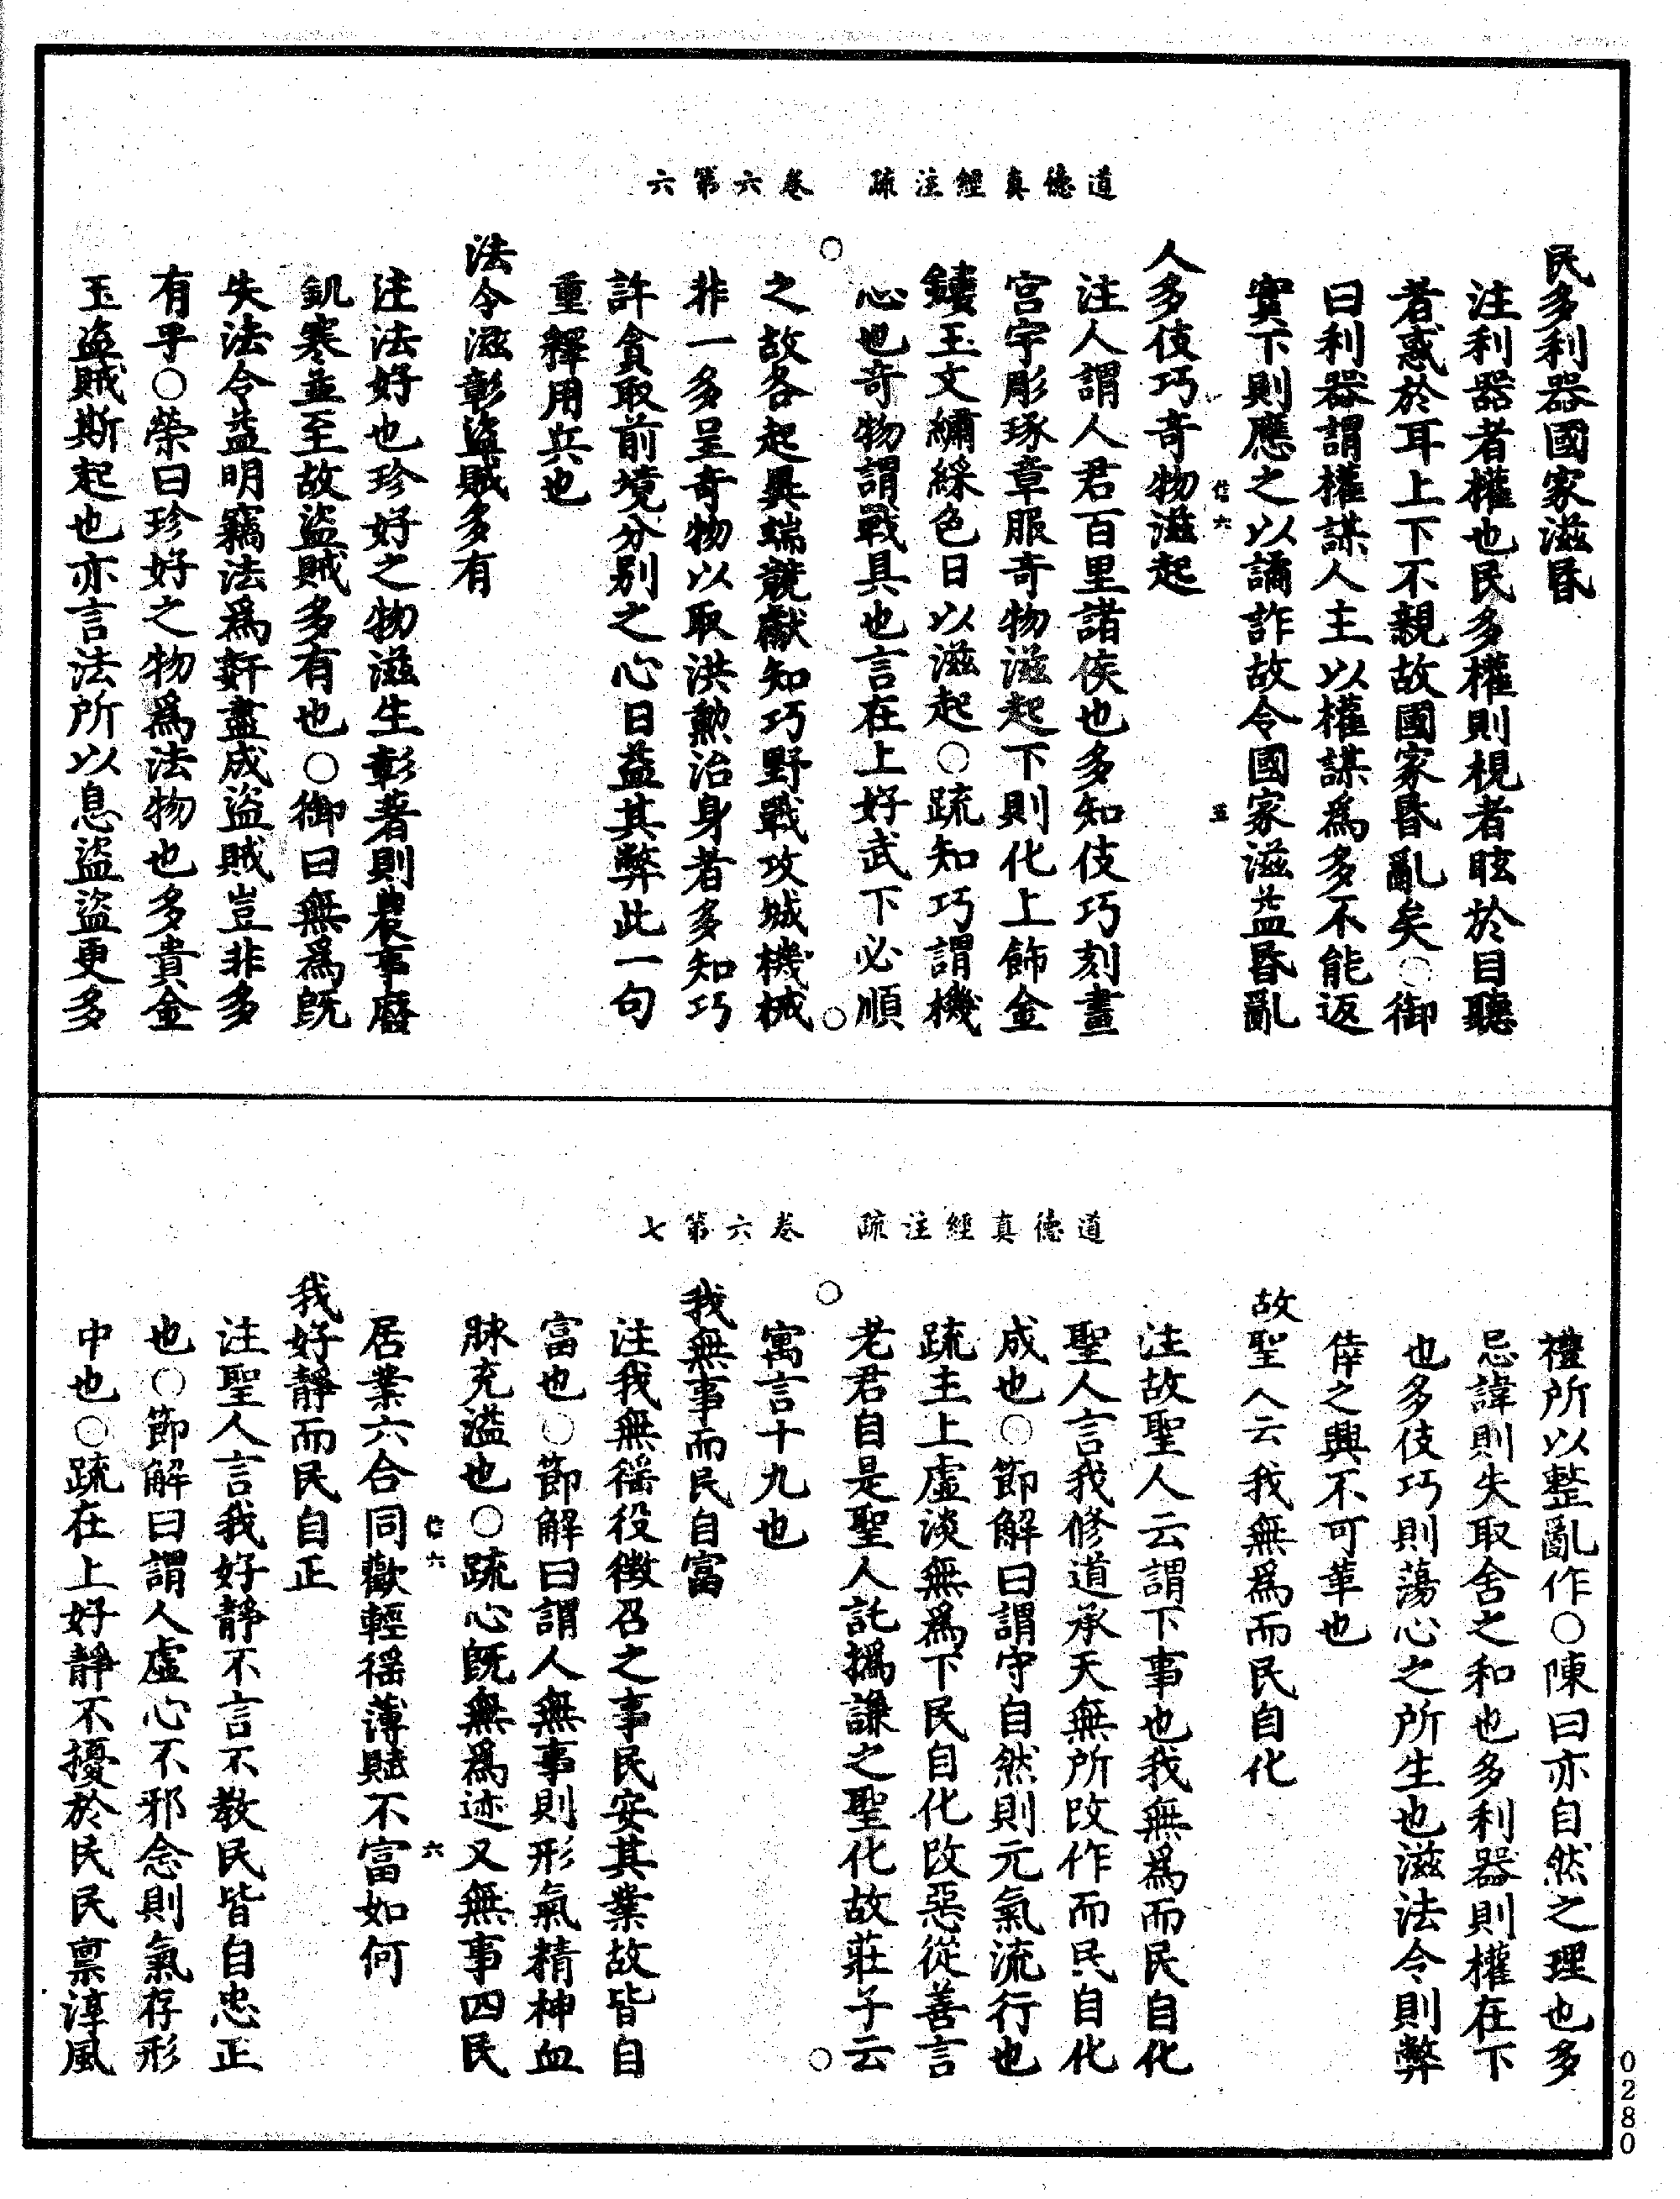 道德真經注疏　卷六第六
民多利器國家滋昬
注利器者權也民多權則視者眩於目聽
者惑於耳上下不親故國家昬亂矣○御
曰利器謂權謀人主以權謀爲多不能返
實下則應之以譎詐故令國家滋益昬亂
信六　五
人多伎巧奇物滋起
注人謂人君百里諸侯也多知伎巧刻畫
宫宇彫琢章服奇物滋起下則化上飾金
鏤玉文繡綵色日以滋起○疏知巧謂機
心也奇物謂戰具也言在上好武下必順
之故各起異端競獻知巧野戰攻城機械
非一多呈奇物以取洪勳治身者多知巧
許貪取前境分别之心日益其弊此一句
重釋用兵也
法令滋彰盜賊多有
注法好也珍好之物滋生彰著則農事廢
飢寒並至故盜賊多有也○御曰無爲既
失法令益明竊法爲姧盡成盜賊豈非多
有乎○榮曰珍好之物爲法物也多貴金
玉盜賊斯起也亦言法所以息盜盜更多
道德真經注疏　卷六第七
禮所以整亂作○陳曰亦自然之理也多
忌諱則失取舍之和也多利器則權在下
也多伎巧則蕩心之所生也滋法令則弊
倖之興不可革也
故聖人云我無爲而民自化
注故聖人云謂下事也我無爲而民自化
聖人言我修道承天無所改作而民自化
成也○節解曰謂守自然則元氣流行也
疏主上虛淡無爲下民自化改惡從善言
老君自是聖人託撝謙之聖化故莊子云
寓言十九也
我無事而民自富
注我無徭役徵召之事民安其業故皆自
富也○節解曰謂人無事則形氣精神血
脉充溢也○疏心既無爲迹又無事四民
信六　六
居業六合同歡輕徭薄賦不富如何
我好靜而民自正
注聖人言我好靜不言不教民皆自忠正
也○節解曰謂人虛心不邪念則氣存形
中也○疏在上好靜不擾於民民禀淳風
0280